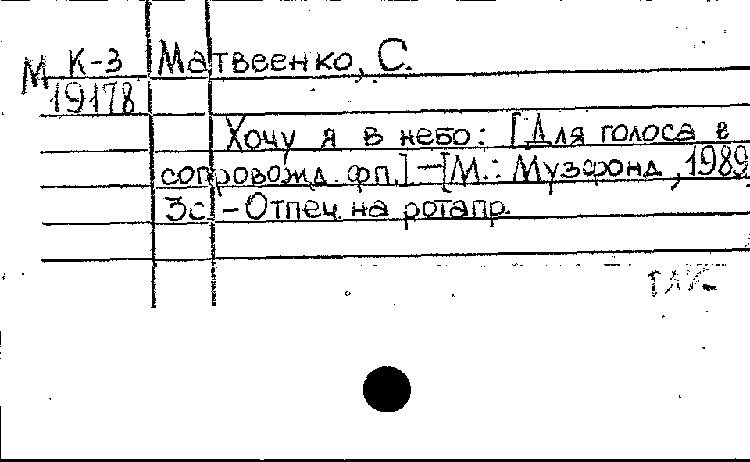 М К-3 Матвеенко, С.
19178
Хочу я в небо: [Для голоса в
сопровожд. фп.] – [М.: Музфонд, 1989
3с. – Отпеч. на ротапр.